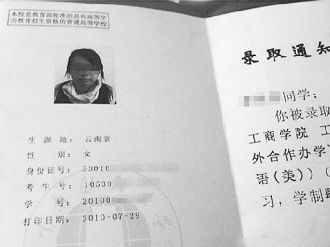 本校是教育部批准的具有高等学
历教育招生资格的普通高等学校
生源地：云南省
性别：女
身份证号：53010
考生号：10530
学号：20100
打印日期：2010-07-29
录取通知
同学：
你被录取
工商学院 工
外合作办学
语（美））（
习，学制